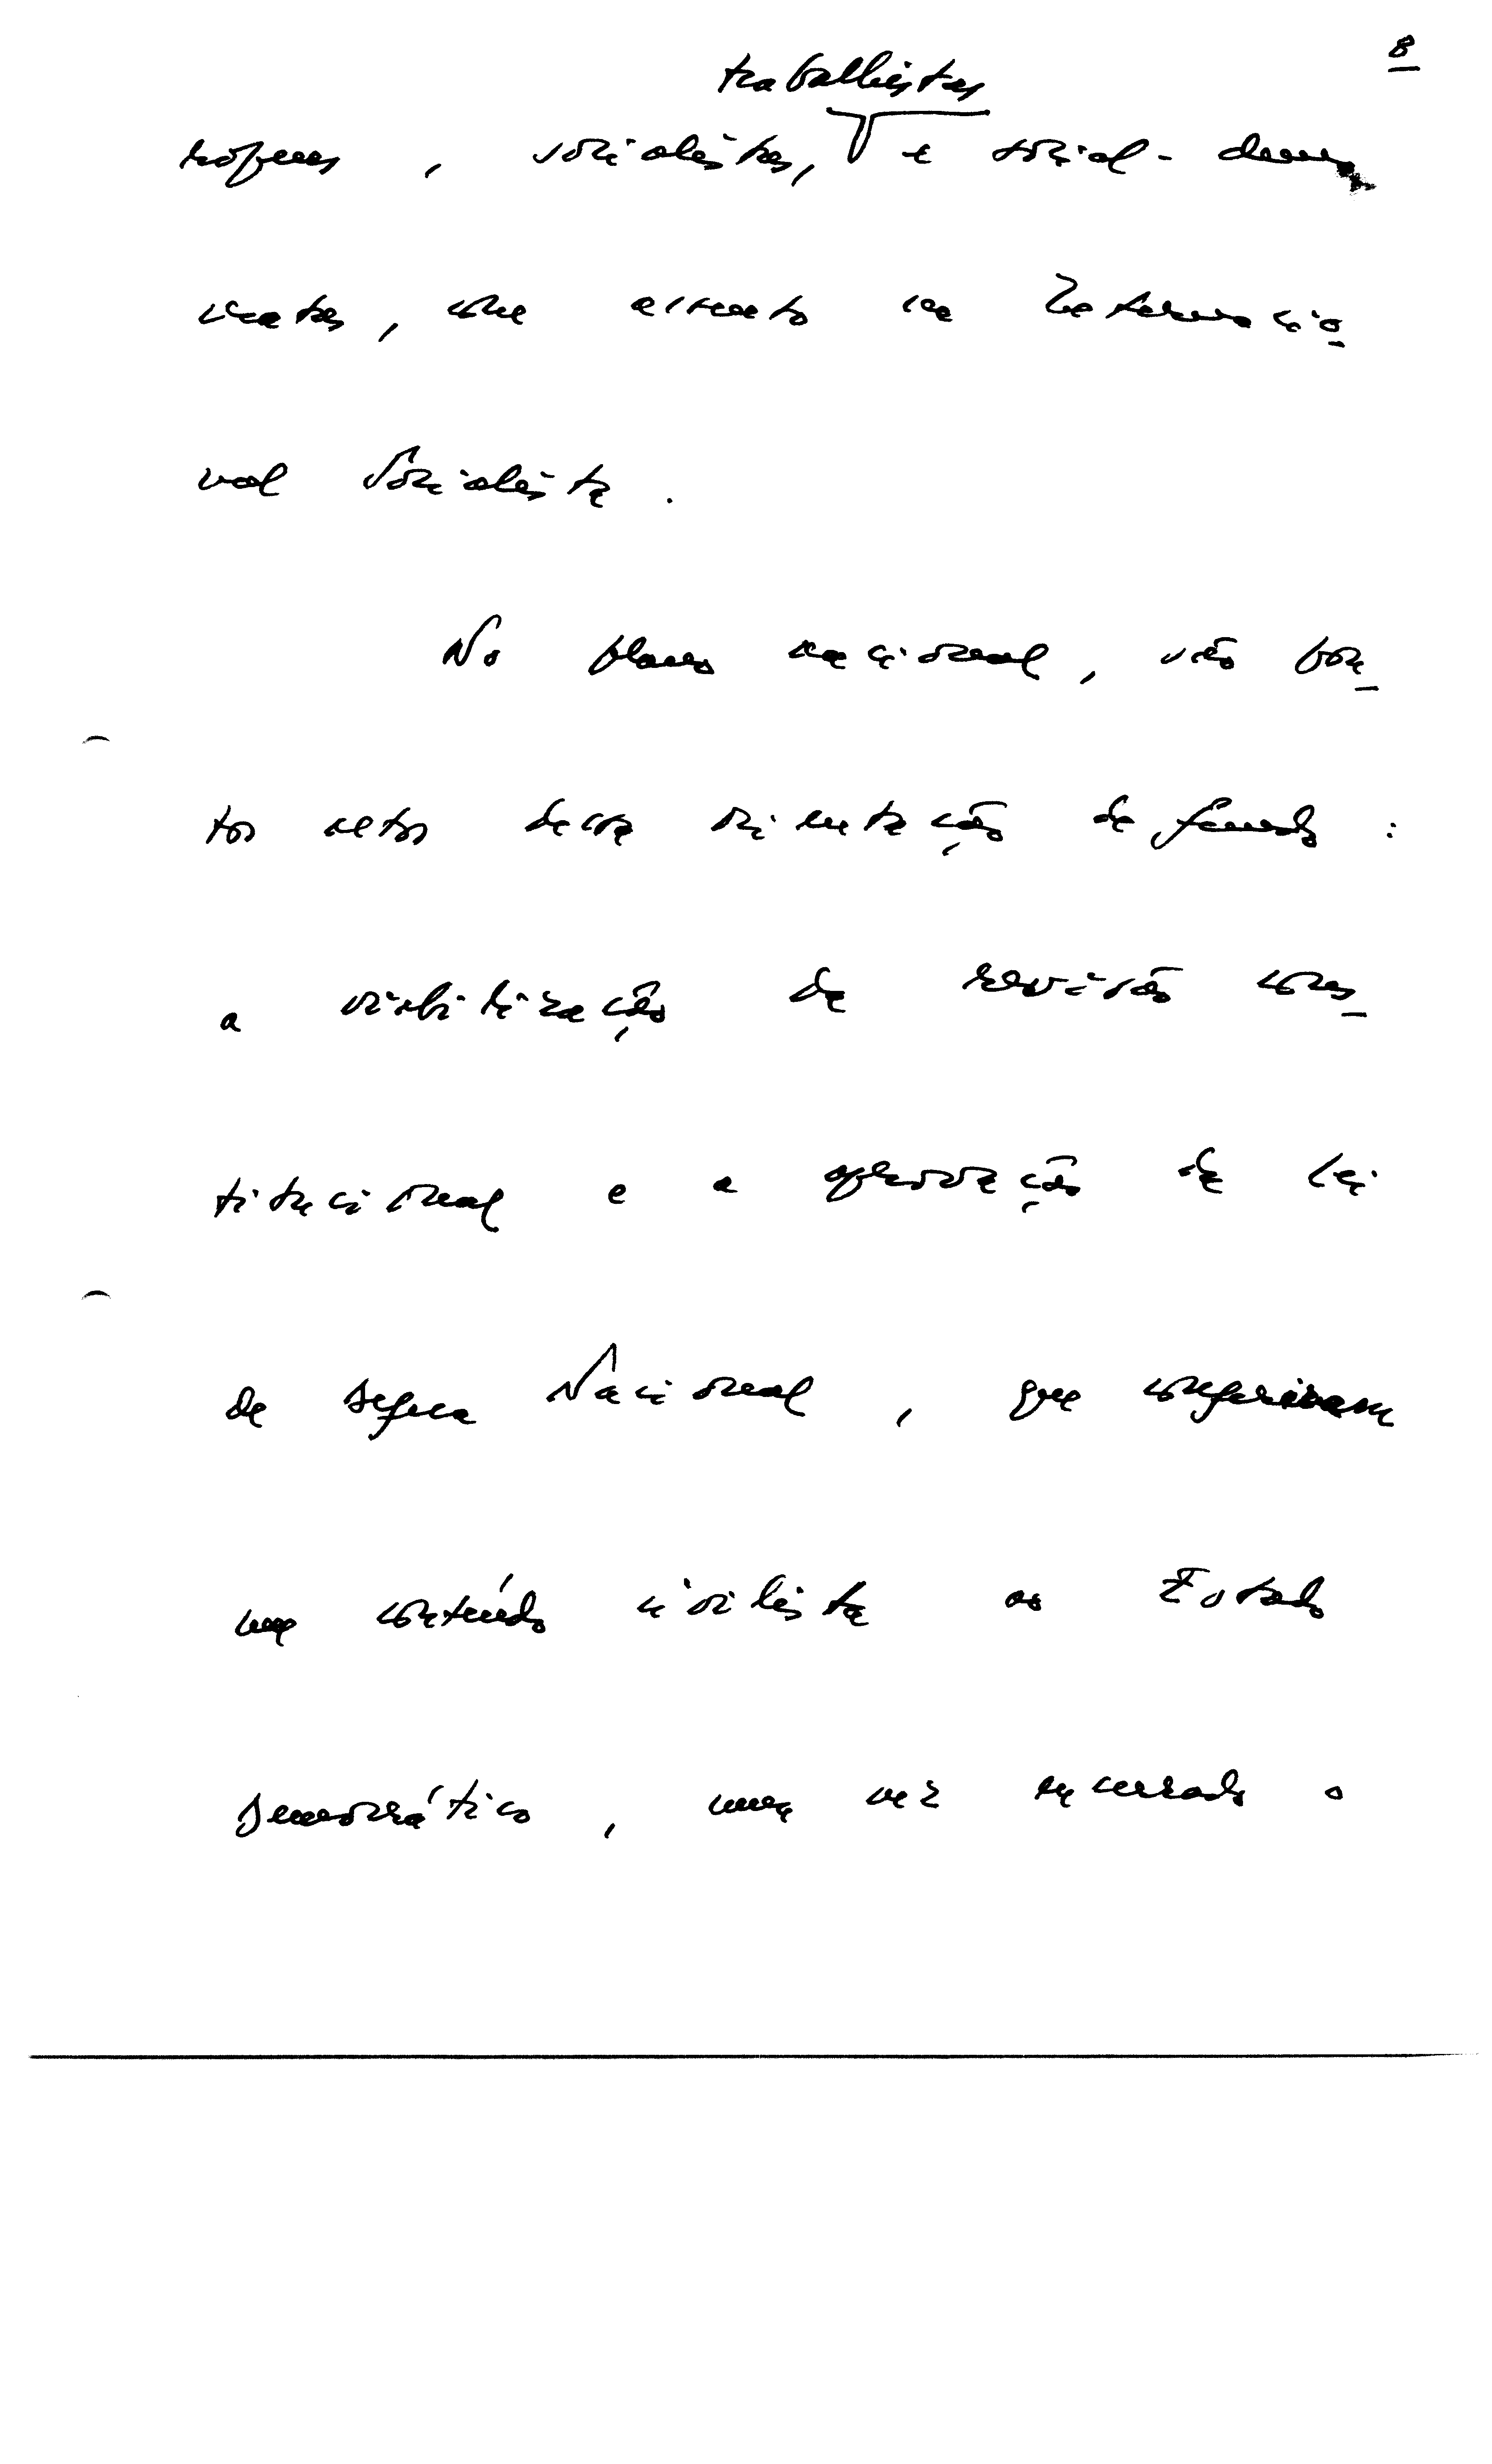 8
trabalhistas
ropeus, socialistas, e social-demo
cratas, com assento na Internacio
nal Socialista.
No plano nacional, são pon
tos altos desta orientação de fundo:
a viabilização da revisão cons
titucional e a aprovação da Lei
da Defesa Nacional, que conferiram
um conteúdo civilista ao Estado
Democrático, uma vez encerrado o